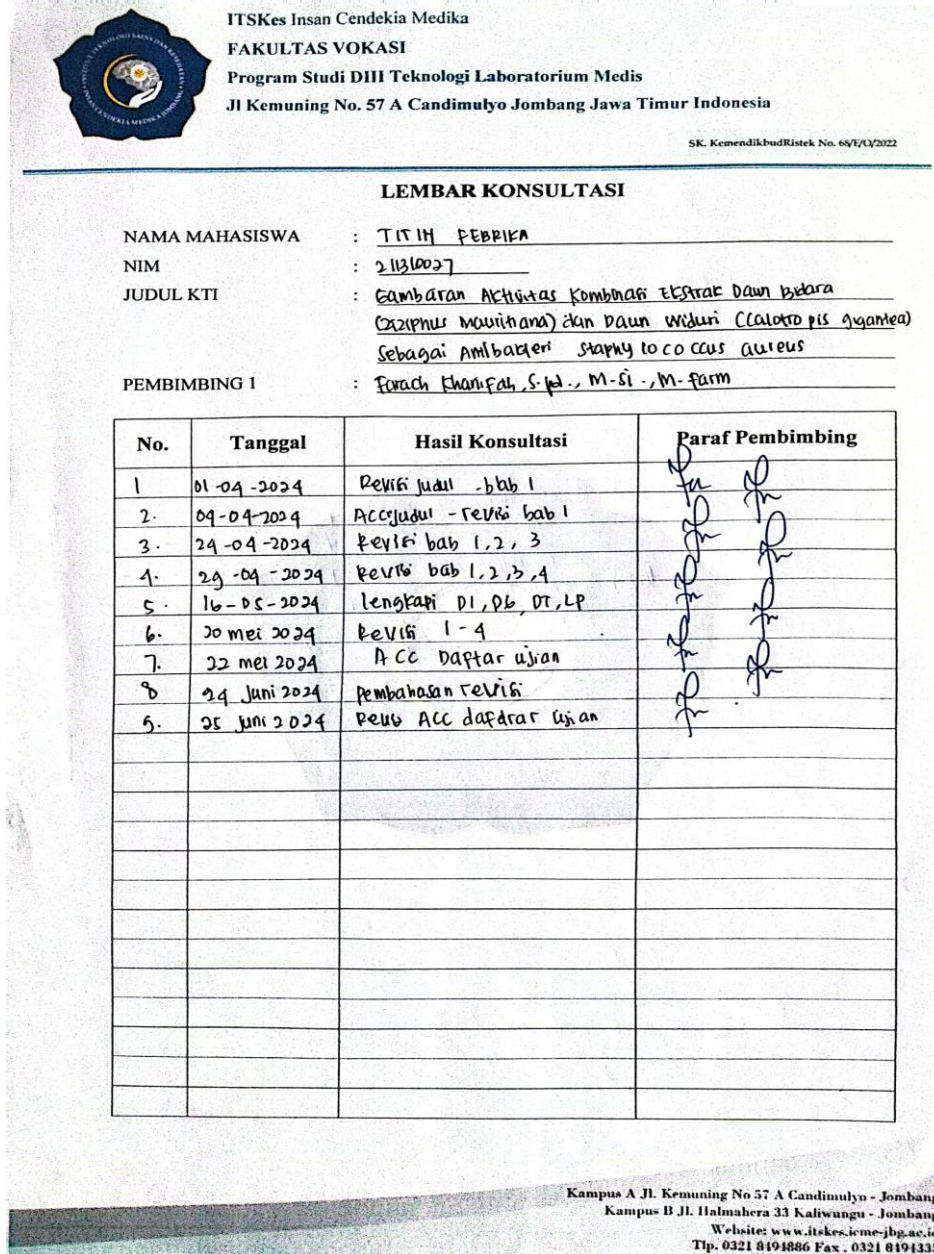 ITSKes Insan Cendekia Medika
FAKULTAS VOKASI
Program Studi DIII Teknologi Laboratorium Medis
Jl Kemuning No. 57 A Candimulyo Jombang Jawa Timur Indonesia
SK. KemendikbudRistek No. 68/E/O/2022
LEMBAR KONSULTASI
NAMA MAHASISWA : TITIH FEBRIKA
NIM : 211310027
JUDUL KTI : Gambaran Aktivitas Kombinasi Ekstrak Daun Bidara
(Ziziphus Mauritiana) dan Daun Widuri (Calotropis gigantea)
Sebagai Antibakteri Staphylococcus aureus
PEMBIMBING 1 : Farach Khanifah, S.Pd., M.Si., M.Farm
No. Tanggal Hasil Konsultasi Paraf Pembimbing
1 01-04-2024 Revisi judul - bab 1
2. 04-04-2024 Acc judul - revisi bab 1
3. 24-04-2024 Revisi bab 1, 2, 3
4. 29-04-2024 Revisi bab 1, 2, 3, 4
5. 16-05-2024 lengkapi DI, DG, DT, LP
6. 20 mei 2024 Revisi 1-4
7. 22 mei 2024 ACC Daftar ujian
8 24 Juni 2024 pembahasan revisi
9. 25 Juni 2024 ACC dafdrar ujian
Kampus A Jl. Kemuning No 57 A Candimulyo - Jombang
Kampus B Jl. Halmahera 33 Kaliwungu - Jombang
Website: www.itskes.icme-jbg.ac.id
Tlp. 0321 8494886 Fax. 0321